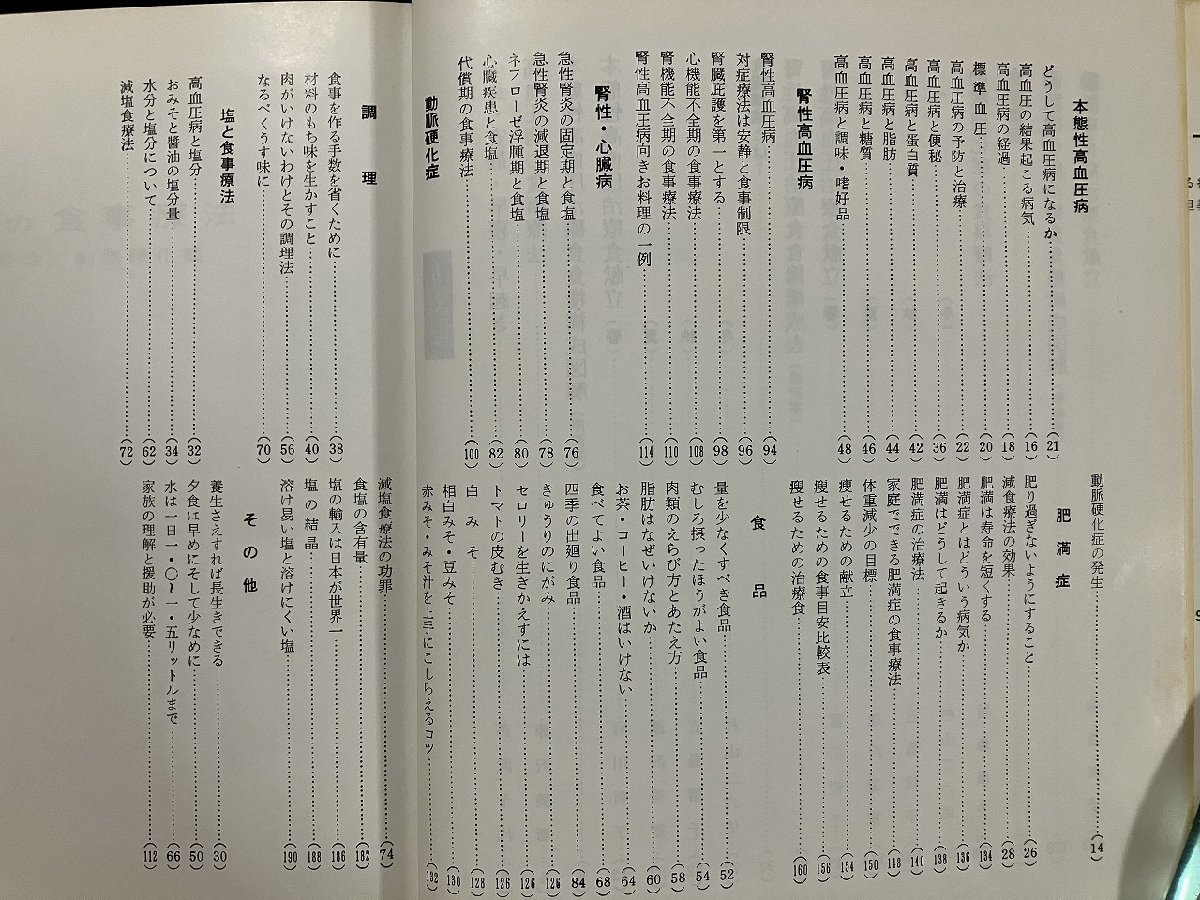 本態性高血圧病
どうして高血圧病になるか(21)
高血圧の結果起こる病気(16)
高血圧病の経過(18)
標準血圧(20)
高血圧病の予防と治療(22)
高血圧病と便秘(36)
高血圧病と蛋白質(42)
高血圧病と脂肪(44)
高血圧病と糖質(46)
高血圧病と調味・嗜好品(48)
腎性高血圧病
腎性高血圧病(94)
対症療法は安静と食事制限(96)
腎臓庇護を第一とする(98)
心機能不全期の食事療法(108)
腎機能不全期の食事療法(110)
腎性高血圧病向きお料理の一例(114)
腎性・心臓病
急性腎炎の固定期と食塩(76)
急性腎炎の減退期と食塩(78)
ネフローゼ浮腫期と食塩(80)
心臓疾患と食塩(82)
代償期の食事療法(100)
動脈硬化症
動脈硬化症の発生(14)
肥満症
肥り過ぎないようにすること(26)
減食療法の効果(28)
肥満は寿命を短くする(134)
肥満症とはどういう病気か(136)
肥満はどうして起きるか(138)
肥満症の治療法(140)
家庭でできる肥満症の食事療法(148)
体重減少の目標(150)
痩せるための献立(154)
痩せるための食事目安比較表(156)
痩せるための治療食(160)
食品
量を少なくすべき食品(52)
むしろ摂ったほうがよい食品(54)
肉類のえらび方とあたえ方(58)
脂肪はなぜいけないか(60)
お茶・コーヒー・酒はいけない(64)
食べてよい食品(68)
四季の出廻り食品(84)
きゅうりのにがみ(126)
セロリーを生きかえすには(126)
トマトの皮むき(126)
白みそ(128)
相白みそ・豆みそ(130)
赤みそ・みそ汁を上手にこしらえるコツ(132)
調理
食事を作る手数を省くために(38)
材料のもち味を生かすこと(40)
肉がいけないわけとその調理法(56)
なるべくうす味に(70)
塩と食事療法
高血圧病と塩分(32)
おみそと醤油の塩分量(34)
水分と塩分について(62)
減塩食療法(72)
減塩食療法の功罪(74)
食塩の含有量(182)
塩の輸入は日本が世界一(186)
塩の結晶(188)
溶け易い塩と溶けにくい塩(190)
その他
養生さえすれば長生きできる(30)
夕食は早めにそして少なめに(50)
水は一日一・〇〜一・五リットルまで(66)
家族の理解と援助が必要(112)